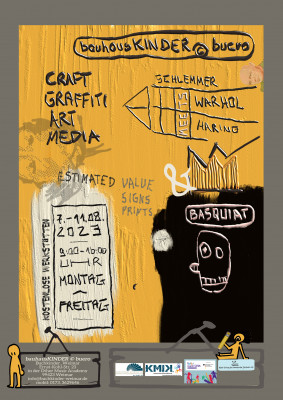 bauhausKINDER © buero
CRAFT
GRAFFITI
ART
MEDIA
SCHLEMMER
MEETS
WARHOL
HARING
ESTIMATED VALUE
SIGNS
PRINTS
&
BASQUIAT
KOSTENLOSE WERKSTATTEN
7.-11.08.
2023
9:00-16:00
UHR
MONTAG
-
FREITAG
bauhausKINDER © buero
99423 Weimar
KMJK